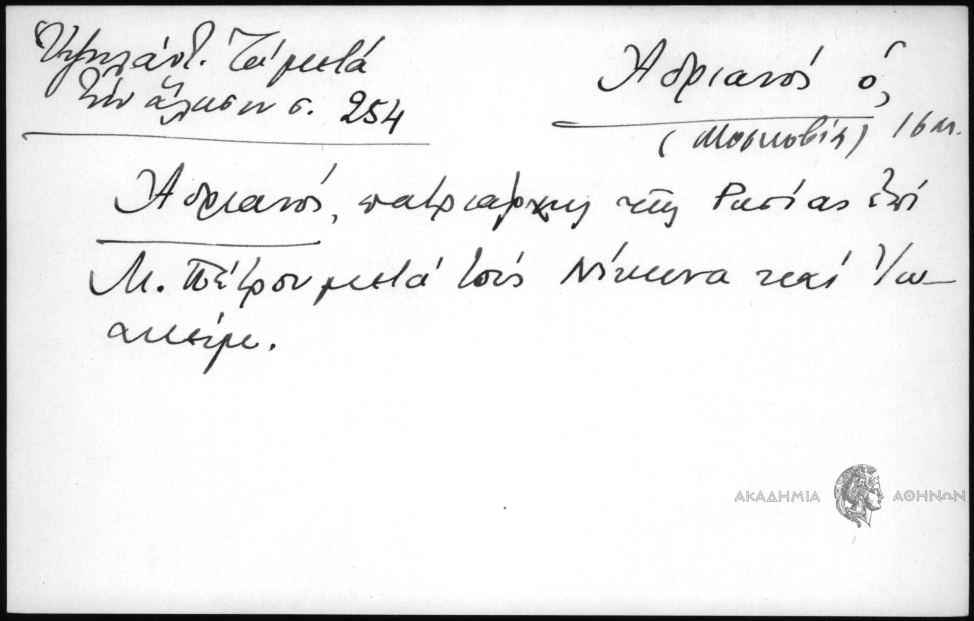 Ὑψηλάντ. Τὰ μετὰ
τὴν ἅλωσιν σ. 254
Ἀδριανός ὁ,
(Μοσκοβίας) 16 αι.
Ἀδριανός, πατριάρχης τῆς Ρωσίας ἐπὶ
Μ. Πέτρου μετά τούς Νίκωνα καί Ἰω-
ακείμ.
ΑΚΑΔΗΜΙΑ ΑΘΗΝΩΝ